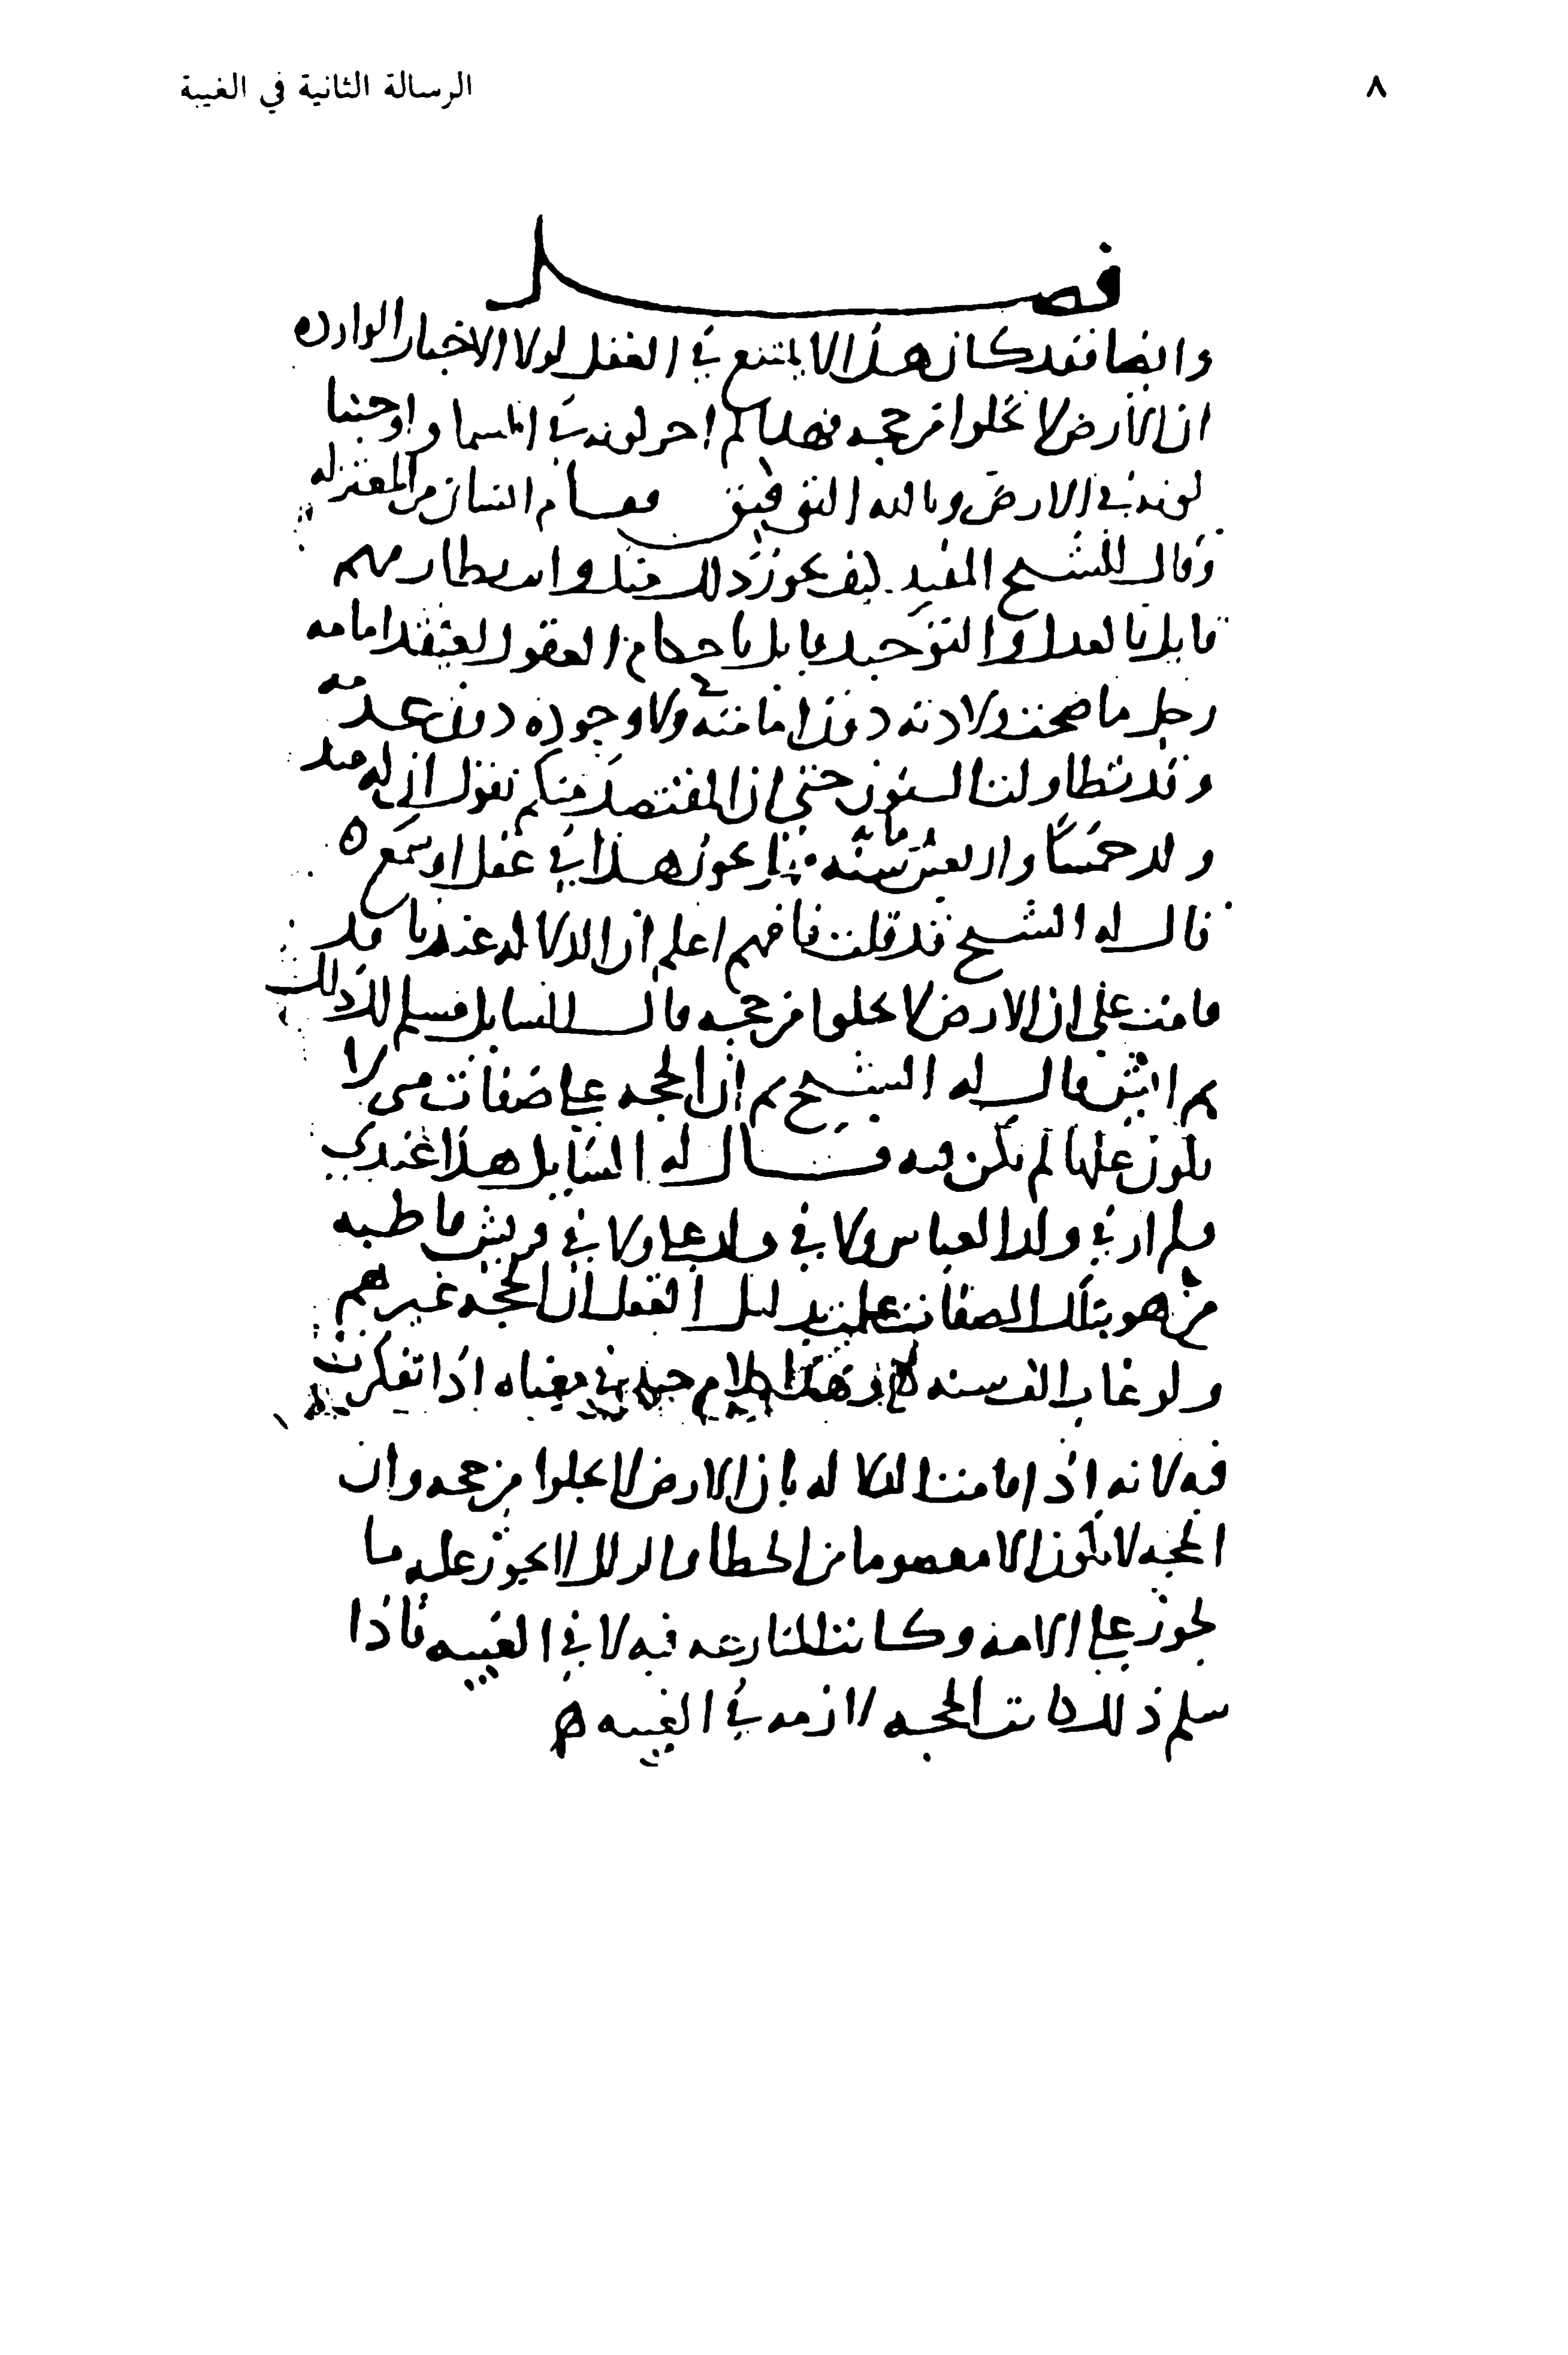 ٨
الرسالة الثانية في الغيبة
فصل
وايضا فقد كان هذا لا يمتنع في العقل لولا الاخبار الوارده
ان الارض لا تخلوا من حجه فلهذا لم نجز كونه في السما واوجبنا
كونه في الارض وبالله التوفيق فقام انسان من المعتزله
وقال للشيخ المفيد كيف يجوز ذلك منك وانت نظار منهم
قايل بالعدل والتوحيد وقايل باحكام العقول تعتقد امامه
رجل ما صحت ولادته دون امامته ولا وجوده دون عدمه
وقد تطاولت السنون حتى ان المعتقد منكم يقول ان له منذ
ولد خمسا واربعين ومائة سنه فهل يجوز هذا في عقل او سمع ه
قال له الشيخ قد قلت فافهم اعلم ان الدلاله عندنا قد
قامت على ان الارض لا تخلوا من حجه قال السايل مسلم لك ذلك
ثم ايش قال له الشيخ ثم ان الحجه على صفات متى لا
يكون عليها لم يكن فيه قال له السايل هذا عندي
ولم ار في ولد العباس ولا في ولد علي ولا في قريش قاطبه
من هو بتلك الصفات علمت بدليل العقل ان الحجه غيرهم
ولو غاب الف سنه وهذا كلام جيد في معناه اذا تفكرت
فيه لانه اذا قامت الدلاله بان الارض لا يخلوا من حجه وان
الحجه لا يكون الا معصوما من الخطا والزلل لا يجوز عليه ما
يجوز على الامه وكانت المنازعه فيه لا في الغيبه فاذا
سلم ذلك كانت الحجه لازمه في الغيبه ه